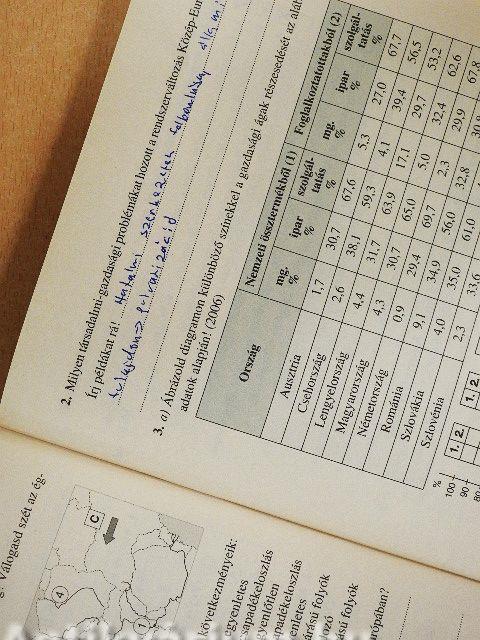 2. Milyen társadalmi-gazdasági problémákat hozott a rendszerváltozás Közép-Eur
Írj példákat rá! Hatalmi szerkezetek felbomlása, állami
tulajdon → privatizáció
3. a) Ábrázold diagramon különböző színekkel a gazdasági ágak részesedését az aláb
adatok alapján! (2006)
Ország Nemzeti össztermékből (1) Foglalkoztatottakból (2)
mg. % ipar % szolgál-tatás % mg. % ipar % szolgál-tatás %
Ausztria 1,7 30,7 67,6 5,3 27,0 67,7
Csehország 2,6 38,1 59,3 4,1 39,4 56,5
Lengyelország 4,4 31,7 63,9 17,1 29,7 53,2
Magyarország 4,3 30,7 65,0 5,0 32,4 62,6
Németország 0,9 29,4 69,7 2,3 29,9 67,8
Románia 9,1 34,9 56,0 32,8
Szlovákia 4,0 35,0 61,0
Szlovénia 2,3 33,6
%
100
90
80
1. 2.
1. 2.
Válogasd szét az ég-
C
4
következményeik:
egyenletes
csapadékeloszlás
egyenlőtlen